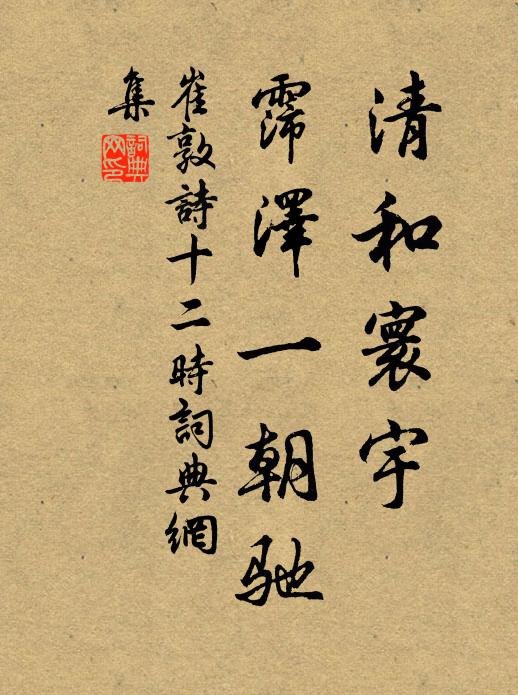 清和寰宇
霈澤一朝馳
崔敦詩十二時詞典網
集
詞典
网印